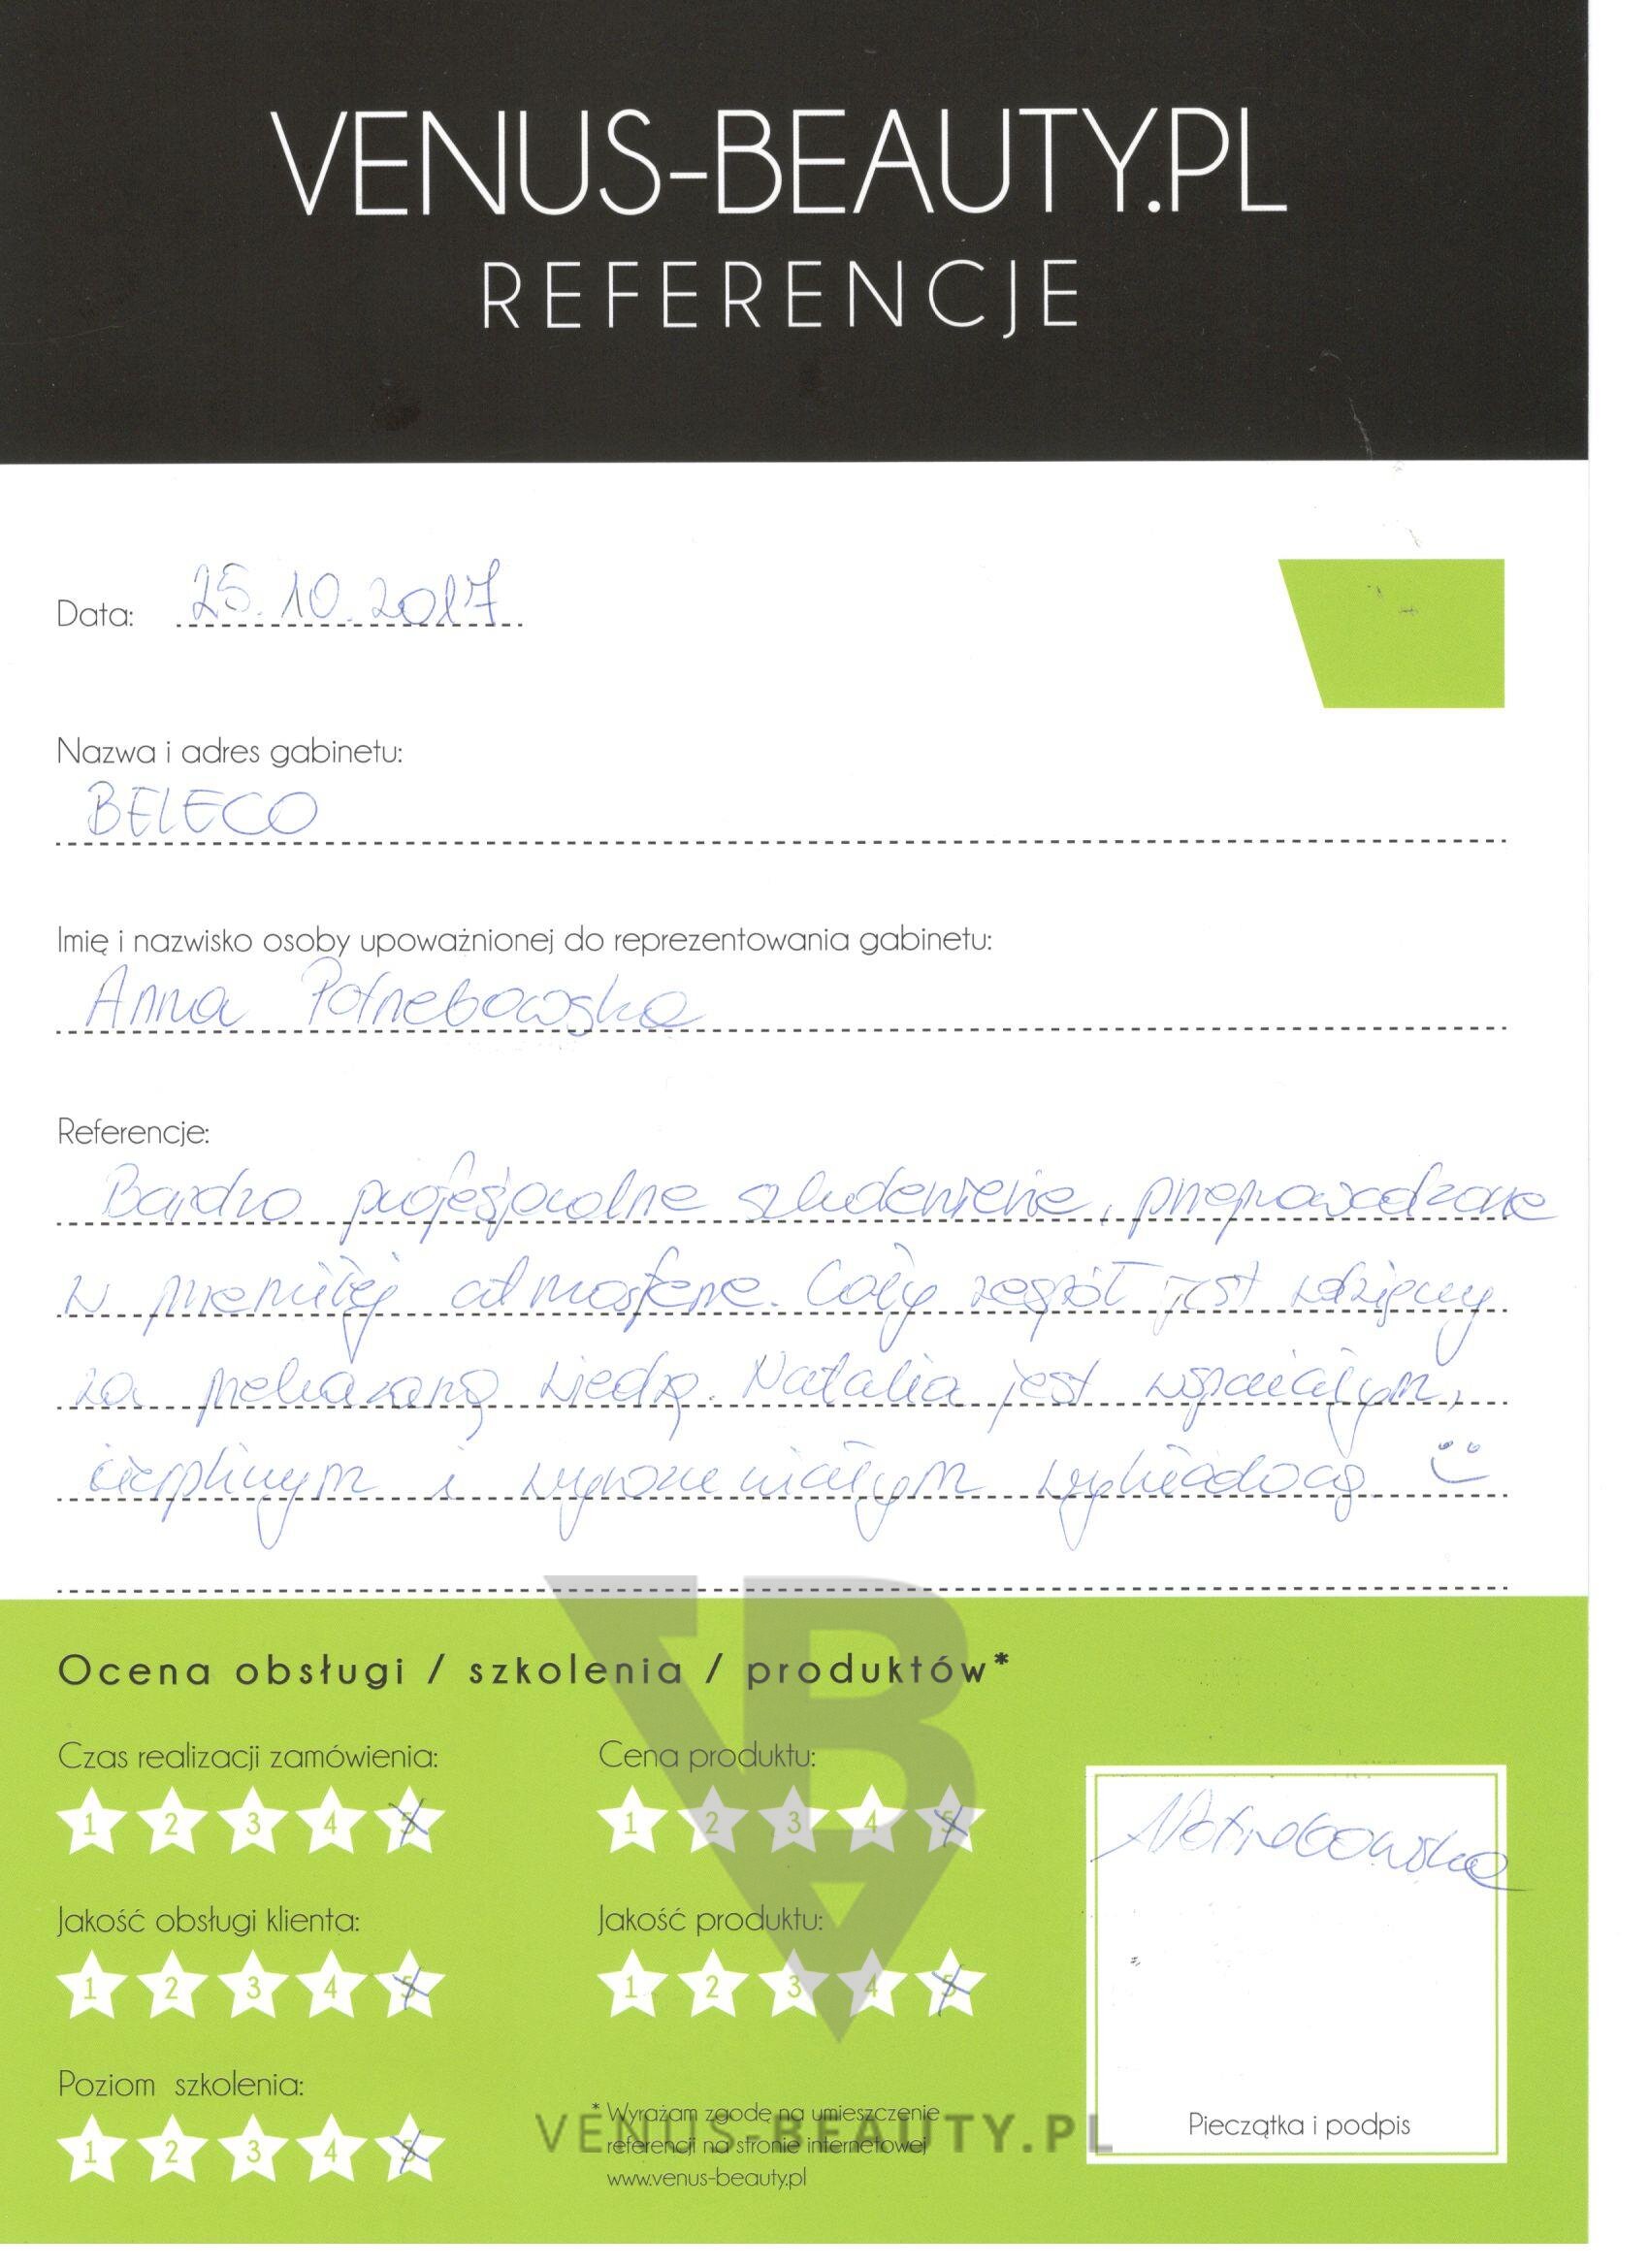 VENUS-BEAUTY.PL
REFERENCJE
Data: 25.10.2017
Nazwa i adres gabinetu:
BELECO
Imię i nazwisko osoby upoważnionej do reprezentowania gabinetu:
Anna Potrzebowska
Referencje:
Bardzo profesjonalne szkolenie, przeprowadzone
w przemiłej atmosferze. Cały zespół jest wdzięczny
za przekazaną wiedzę. Natalia jest wspaniałym,
cierpliwym i wyrozumiałym wykładocą. :)
Ocena obsługi / szkolenia / produktów*
Czas realizacji zamówienia: Cena produktu:
1 2 3 4 5 1 2 3 4 5
Potrzebowska
Jakość obsługi klienta: Jakość produktu:
1 2 3 4 5 1 2 3 4 5
Poziom szkolenia:
1 2 3 4 5
* Wyrażam zgodę na umieszczenie
referencji na stronie internetowej
www.venus-beauty.pl
Pieczątka i podpis
VENUS-BEAUTY.PL